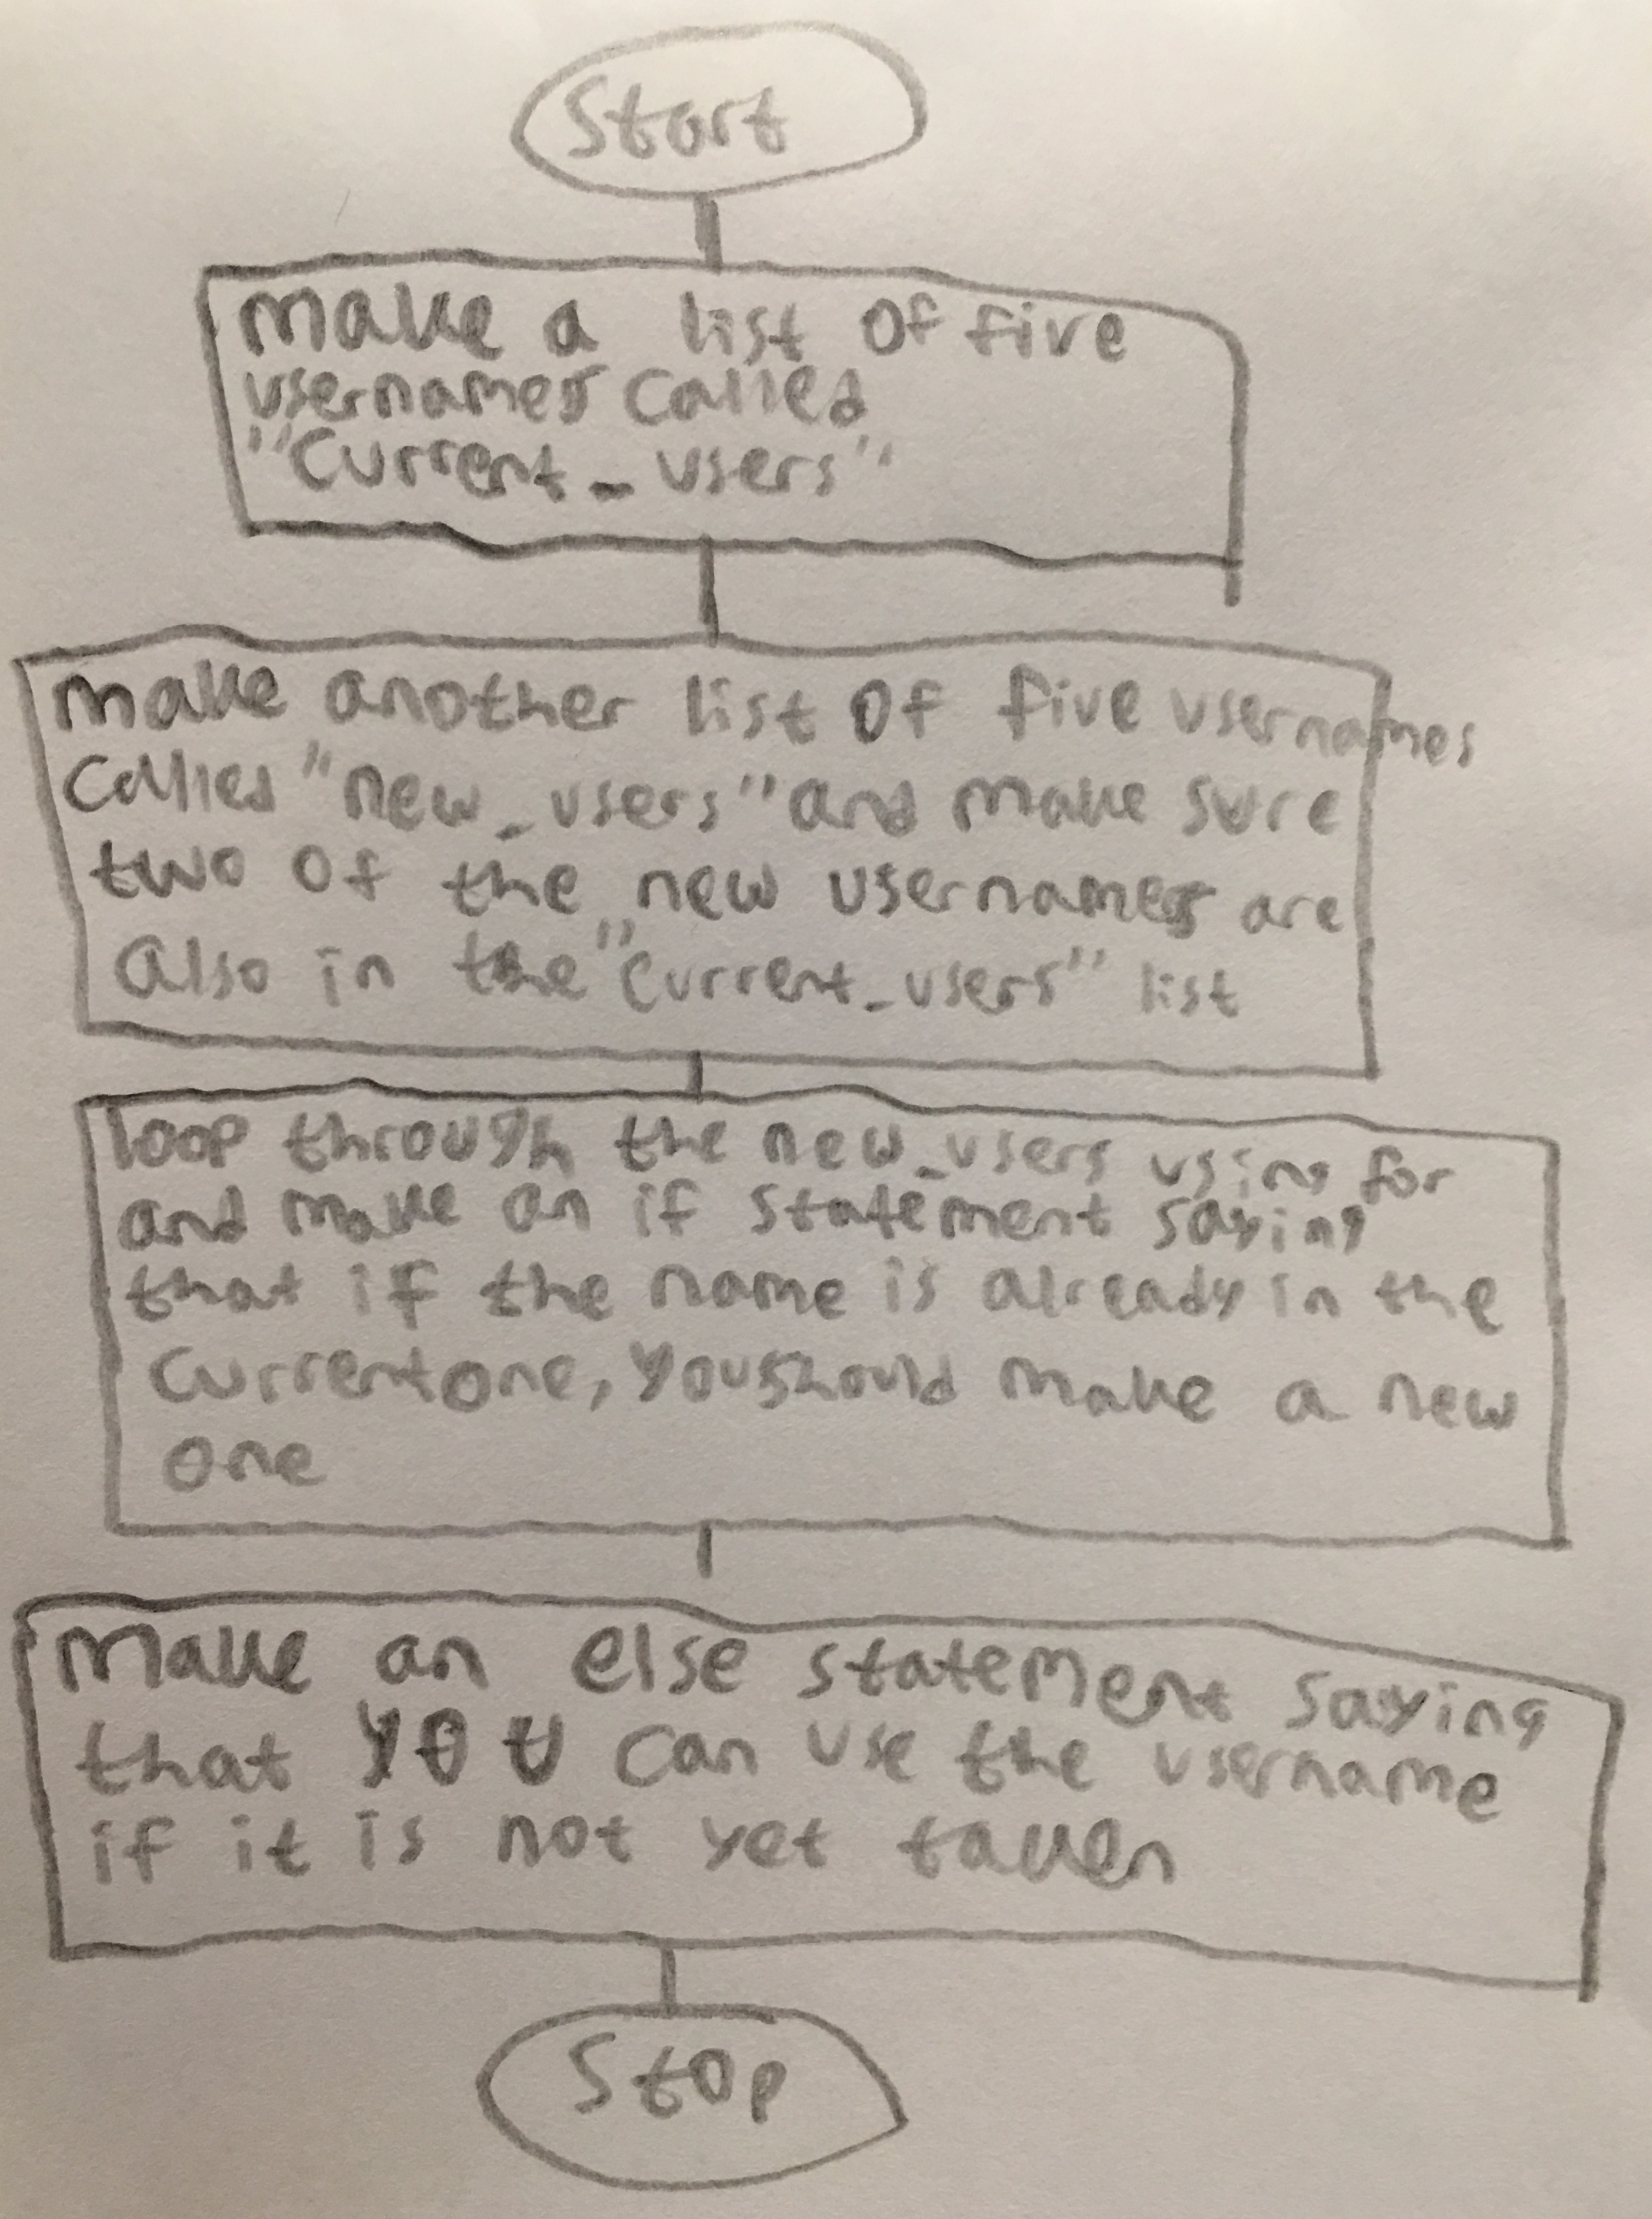 Start
Make a list of five
usernames called
"Current_users"
Make another list of five usernames
called "new_users" and make sure
two of the new usernames are
also in the "current_users" list
loop through the new_users using for
and make an if statement saying
that if the name is already in the
current one, you should make a new
one
Make an else statement saying
that you can use the username
if it is not yet taken
Stop